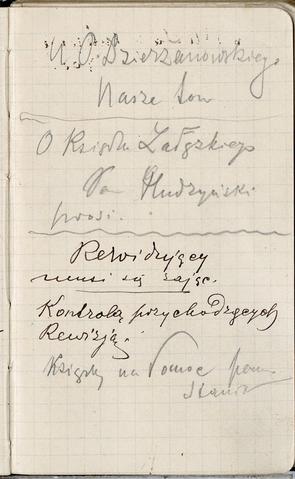 u P. Dzierżanowskiego
Nasze tow
O Księdza Załęzkiego
Pan Studzyński
prosi.
Rewidujący
musi się zająć
Kontrolą przychodzących
Rewizją.
Książkę na Pomoc
Stanis